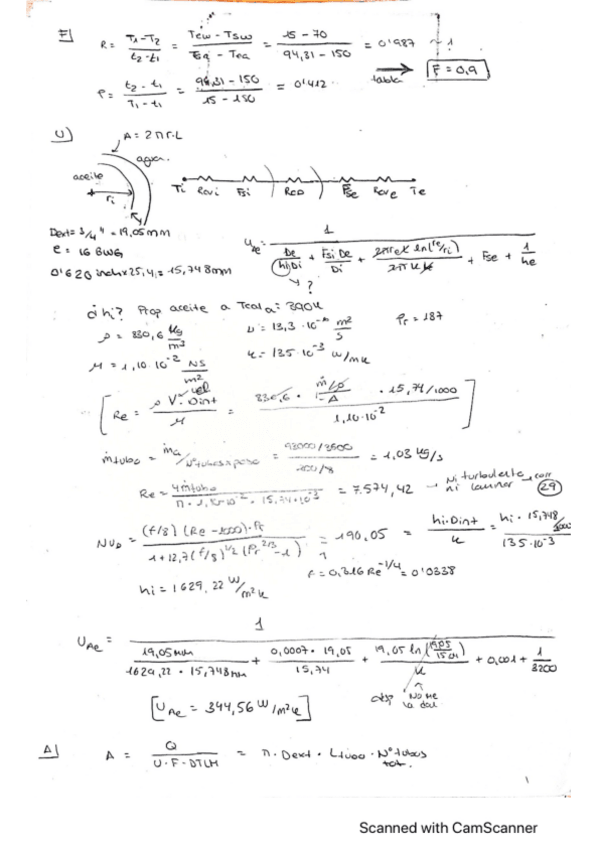 F|
R = (T1-T2)/(t2-t1) = (Tew - Tsw)/(Tsa - Tea) = (15 - 70)/(94,31 - 150) = 0'987 ~ 1
tabla F = 0,9
P = (t2 - t1)/(T1 - t1) = (94,31 - 150)/(15 - 150) = 0'412
U|
A = 2πr·L
agua
aceite
ri
Ti Rcvi Fsi RCD Fse Rcve Te
Dext = 3/4" = 19,05mm
e = 16 BWG
0'620 inch x 25,4 = 15,748mm
1
De/(hi Di) + Fsi De/Di + ln(re/ri) + Fse + 1/he
?
¿hi? Prop aceite a Tcal a: 390K
ρ = 830,6 kg/m³ ν = 13,3 · m²/s Pr = 187
μ = 1,10·10⁻² NS/m² K = 135·10⁻³ W/mK
vel
[Re = ρ V·Dint/μ = 830,6 · ṁ/ρ/A · 15,74/1000 / 1,10·10⁻²]
ṁtubo = ṁa/Nºtubosxpaso = = 1,03 kg/s
Re = 4ṁtubo = 7.574,42 → Ni turbulento ni laminar corr (29)
NuD = (f/8)(Re - 1000)·Pr / 1 + 12,7(f/8)^1/2 (Pr^2/3 - 1) = 190,05 = hi·Dint/K = hi · 15,748/1000 / 135·10⁻³
F = 0,316 Re^-1/4 = 0'0338
hi = 1629,22 W/m²K
1
UAe = 19,05mm/(1629,22 · 15,748mm) + 0,0007 · 19,05/15,74 + 19,05 ln(19,05/)/K + 0,001 + 1/3200
No me la dan
[UAe = 344,56 W/m²K]
A| A = Q/(U·F·DTLM) = π · Dext · Ltubo · Nºtubos tot.
Scanned with CamScanner